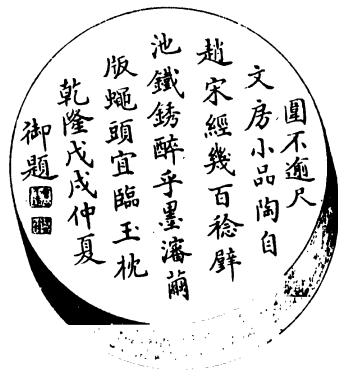 圍不逾尺
文房小品陶自
趙宋經幾百稔璧
池鐵銹醉乎墨瀋繭
版蠅頭宜臨玉枕
乾隆戊戌仲夏
御題